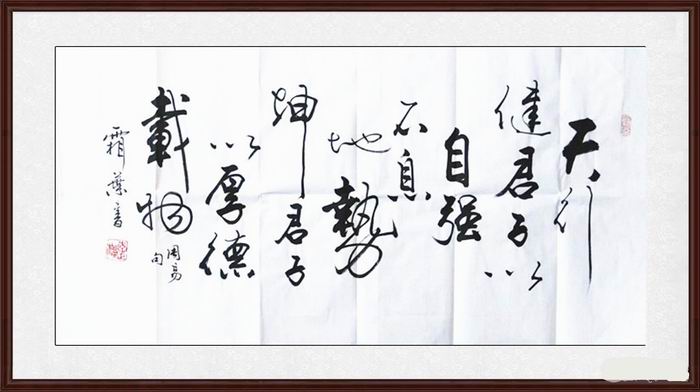 天行
健君子以
自强
不息
地勢
坤君子
以厚德
載物
周易
句
霜葉書